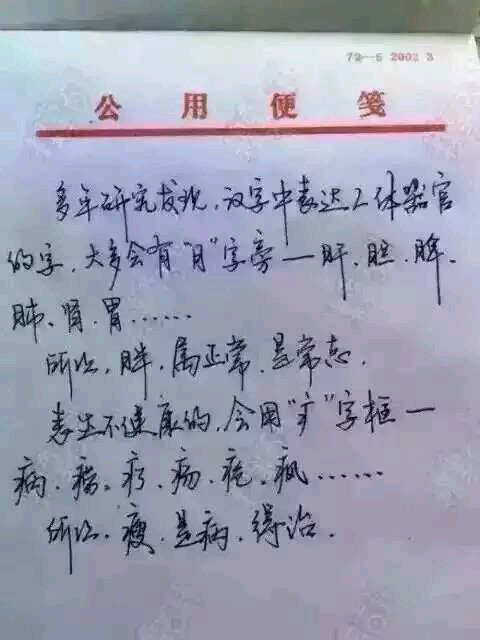 72--5 2002 3
公用便笺
多年研究发现,汉字中表达人体器官
的字,大多会有“月”字旁—肝、胆、脾、
肺、肾、胃……
所以,胖,属正常,是常态.
表达不健康的,会用“疒”字框—
病、瘤、疗、疡、疮、疯……
所以,瘦,是病,得治.